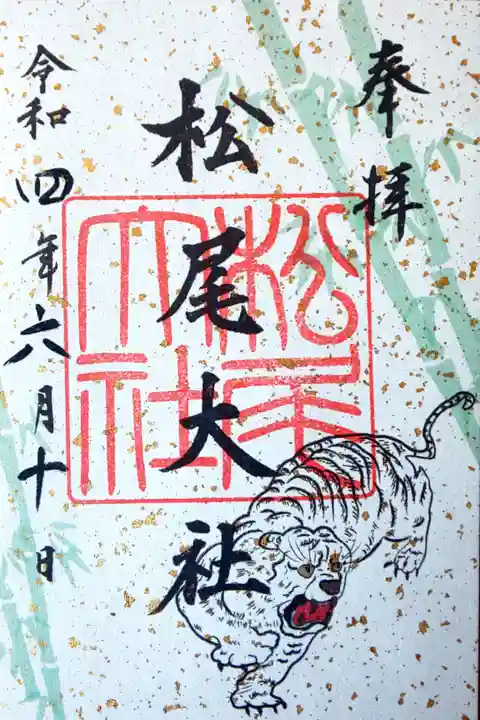 奉拝
松尾大社
松尾大社
令和四年六月十日